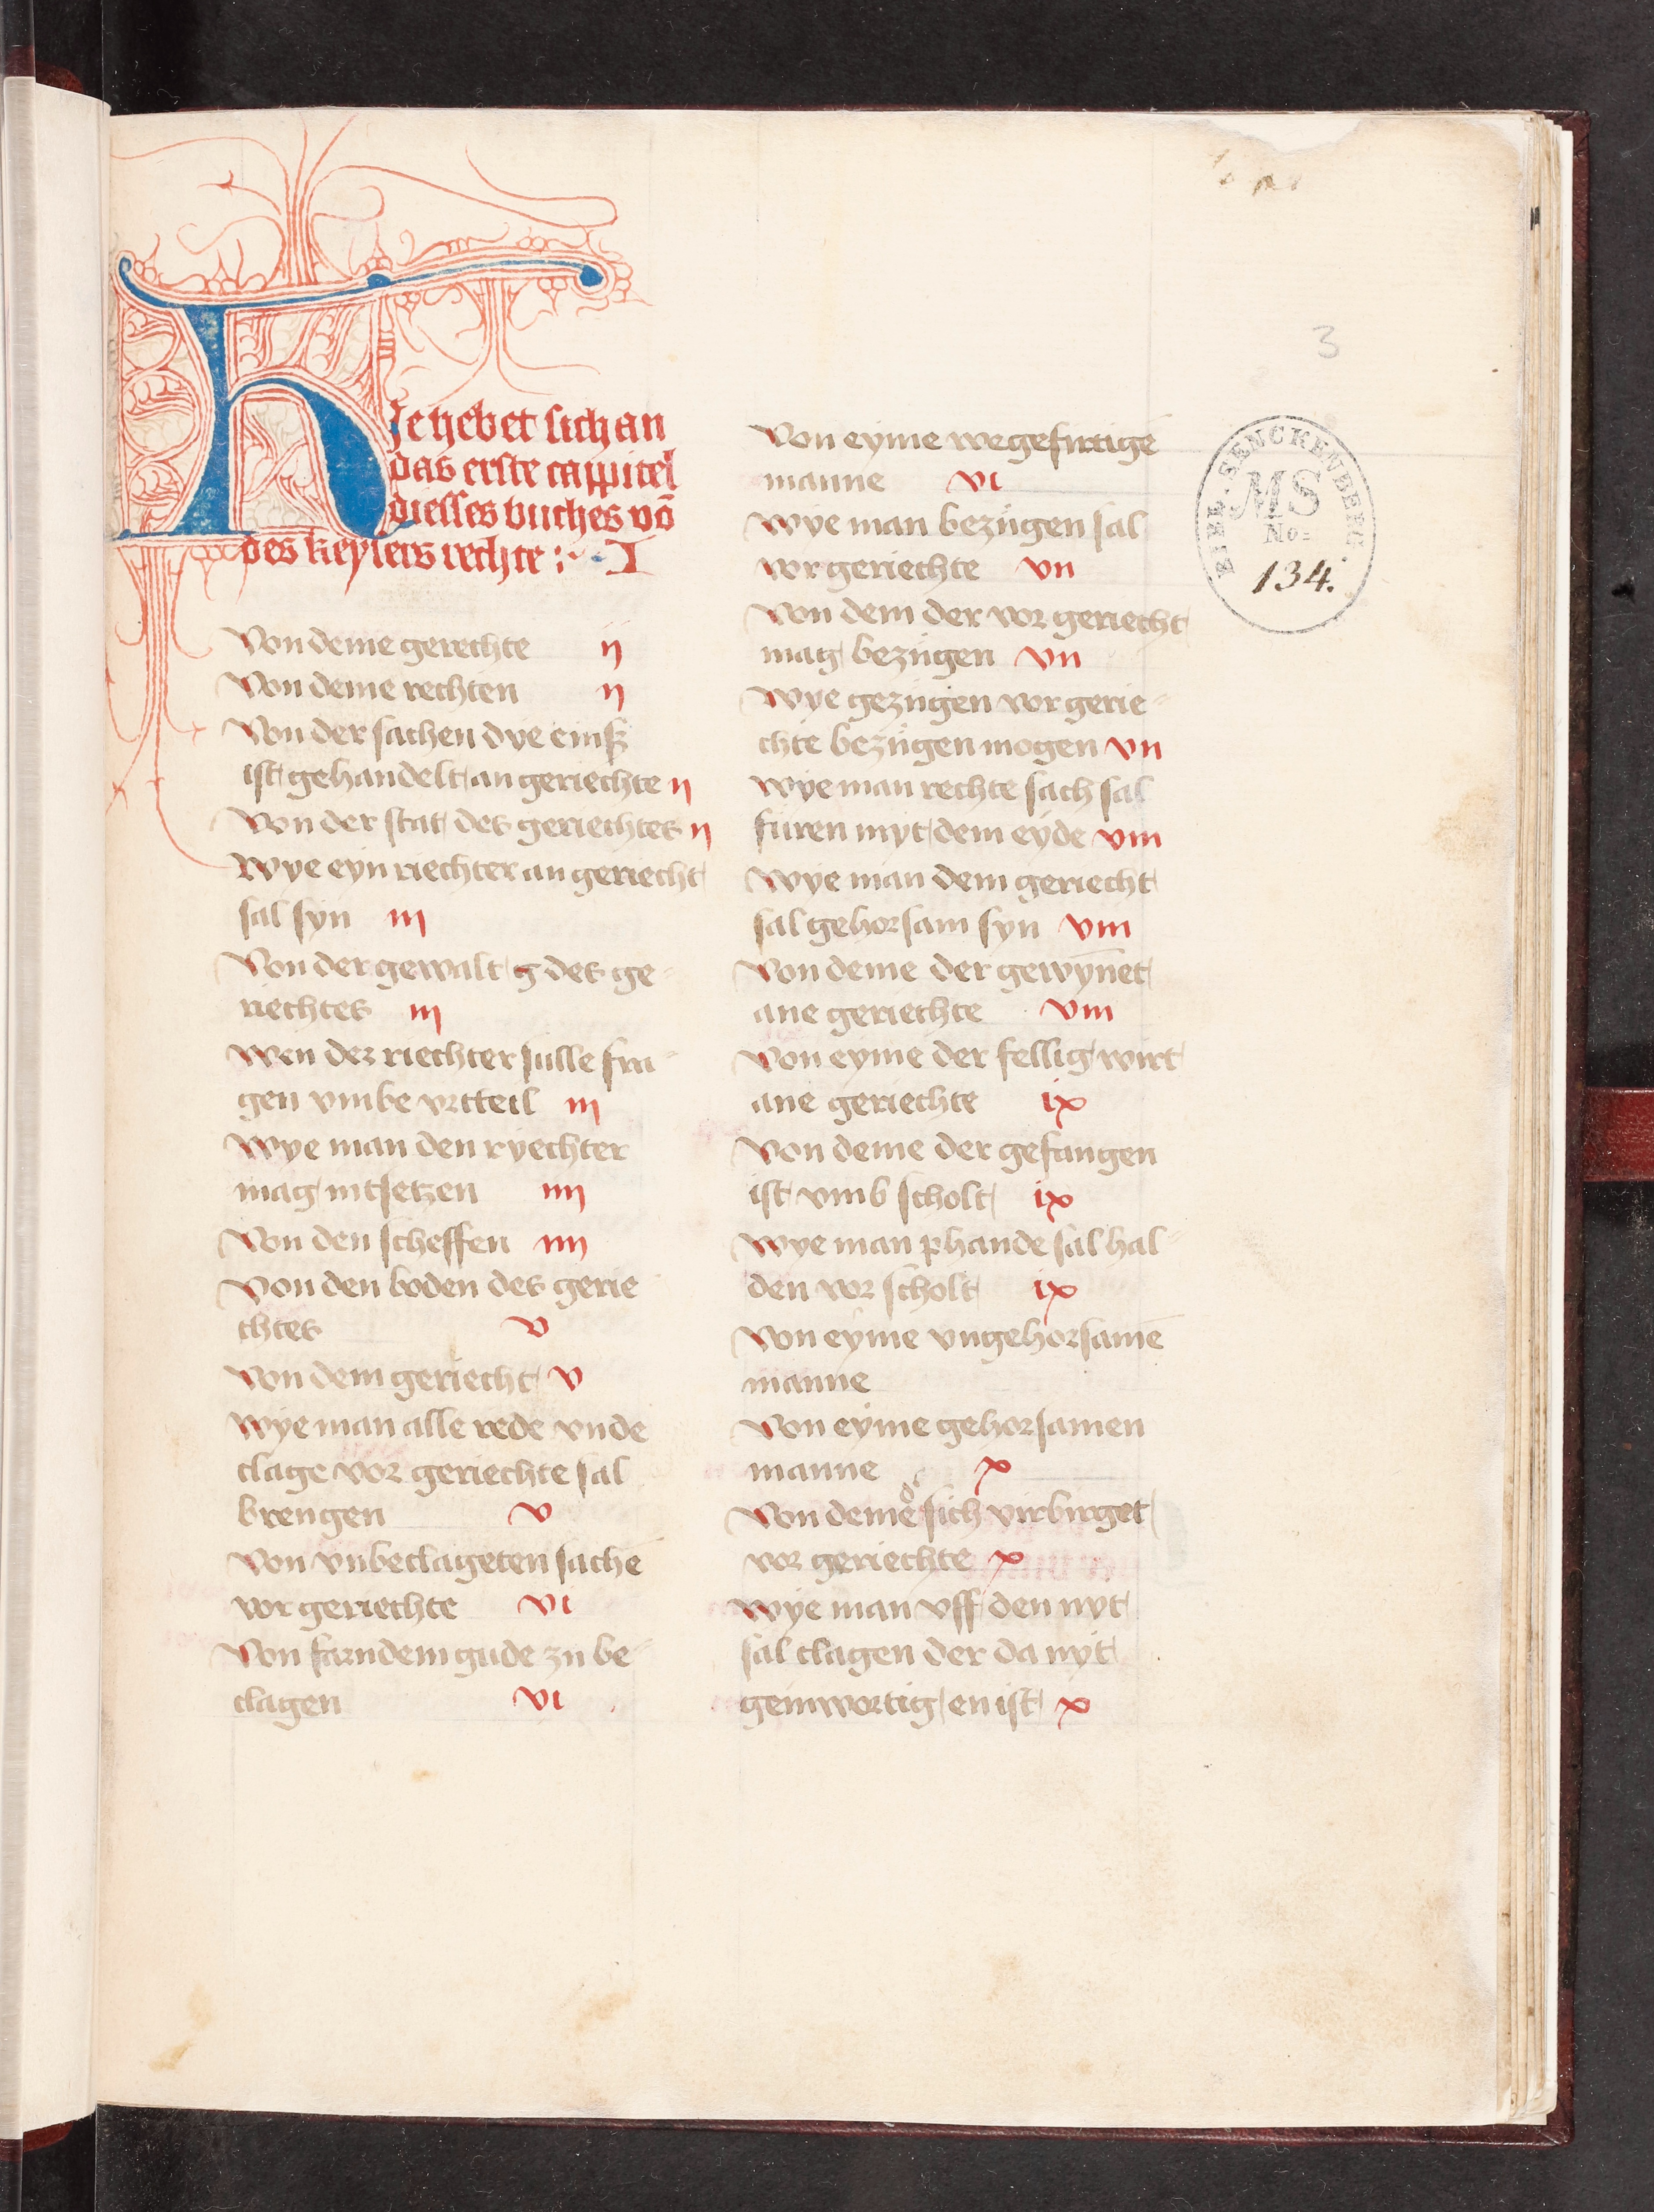 HJe hebet sich an
das erste cappitel
diesses buches vō
des keysers rechte :· I
Von deme gerechte ij
Von deme rechten ij
Von der sachen dye einß
ist gehandelt an geriechte ij
Von der stat des geriechtes ij
Wye eyn riechter an geriecht
sal syn iij
Von der gewalt g des ge-
riechtes iij
Wen der riechter sulle fra-
gen vmbe vrtteil iij
Wye man den ryechter
mag intsetzen iiij
Von den scheffen iiij
Von den boden des gerie
chtes v
Von dem geriecht v
Wye man alle rede vnde
clage vor geriechte sal
brengen v
Von vnbeclageten sachē
vor geriechte vi
Von farndem gude zu be-
clagen vi
Von eyme wegefirtigē
manne vi
Wye man bezugen sal
vor geriechte vii
Von dem der vor geriecht
mag bezugen vii
Wye gezugen vor gerie-
chte bezugen mogen vii
Wye man rechte sach sal
furen myt dem eyde viii
Wye man dem geriecht
sal gehorsam syn viii
Von deme der gewyn̄et
ane geriechte viii
Von eyme der fellig wirt
ane geriechte ix
Von deme der gefangen
ist vmb scholt ix
Wye man phande sal hal-
den vor scholt ix
Von eyme vngehorsamē
manne
Von eyme gehorsamen
manne x
Von deme d' sich virbirget
vor geriechte x
Wye man vff den nyt
sal clagen der da nyt
geinwortig en ist x
3
BIBL. SENCKENBERG
MS
No:
134.